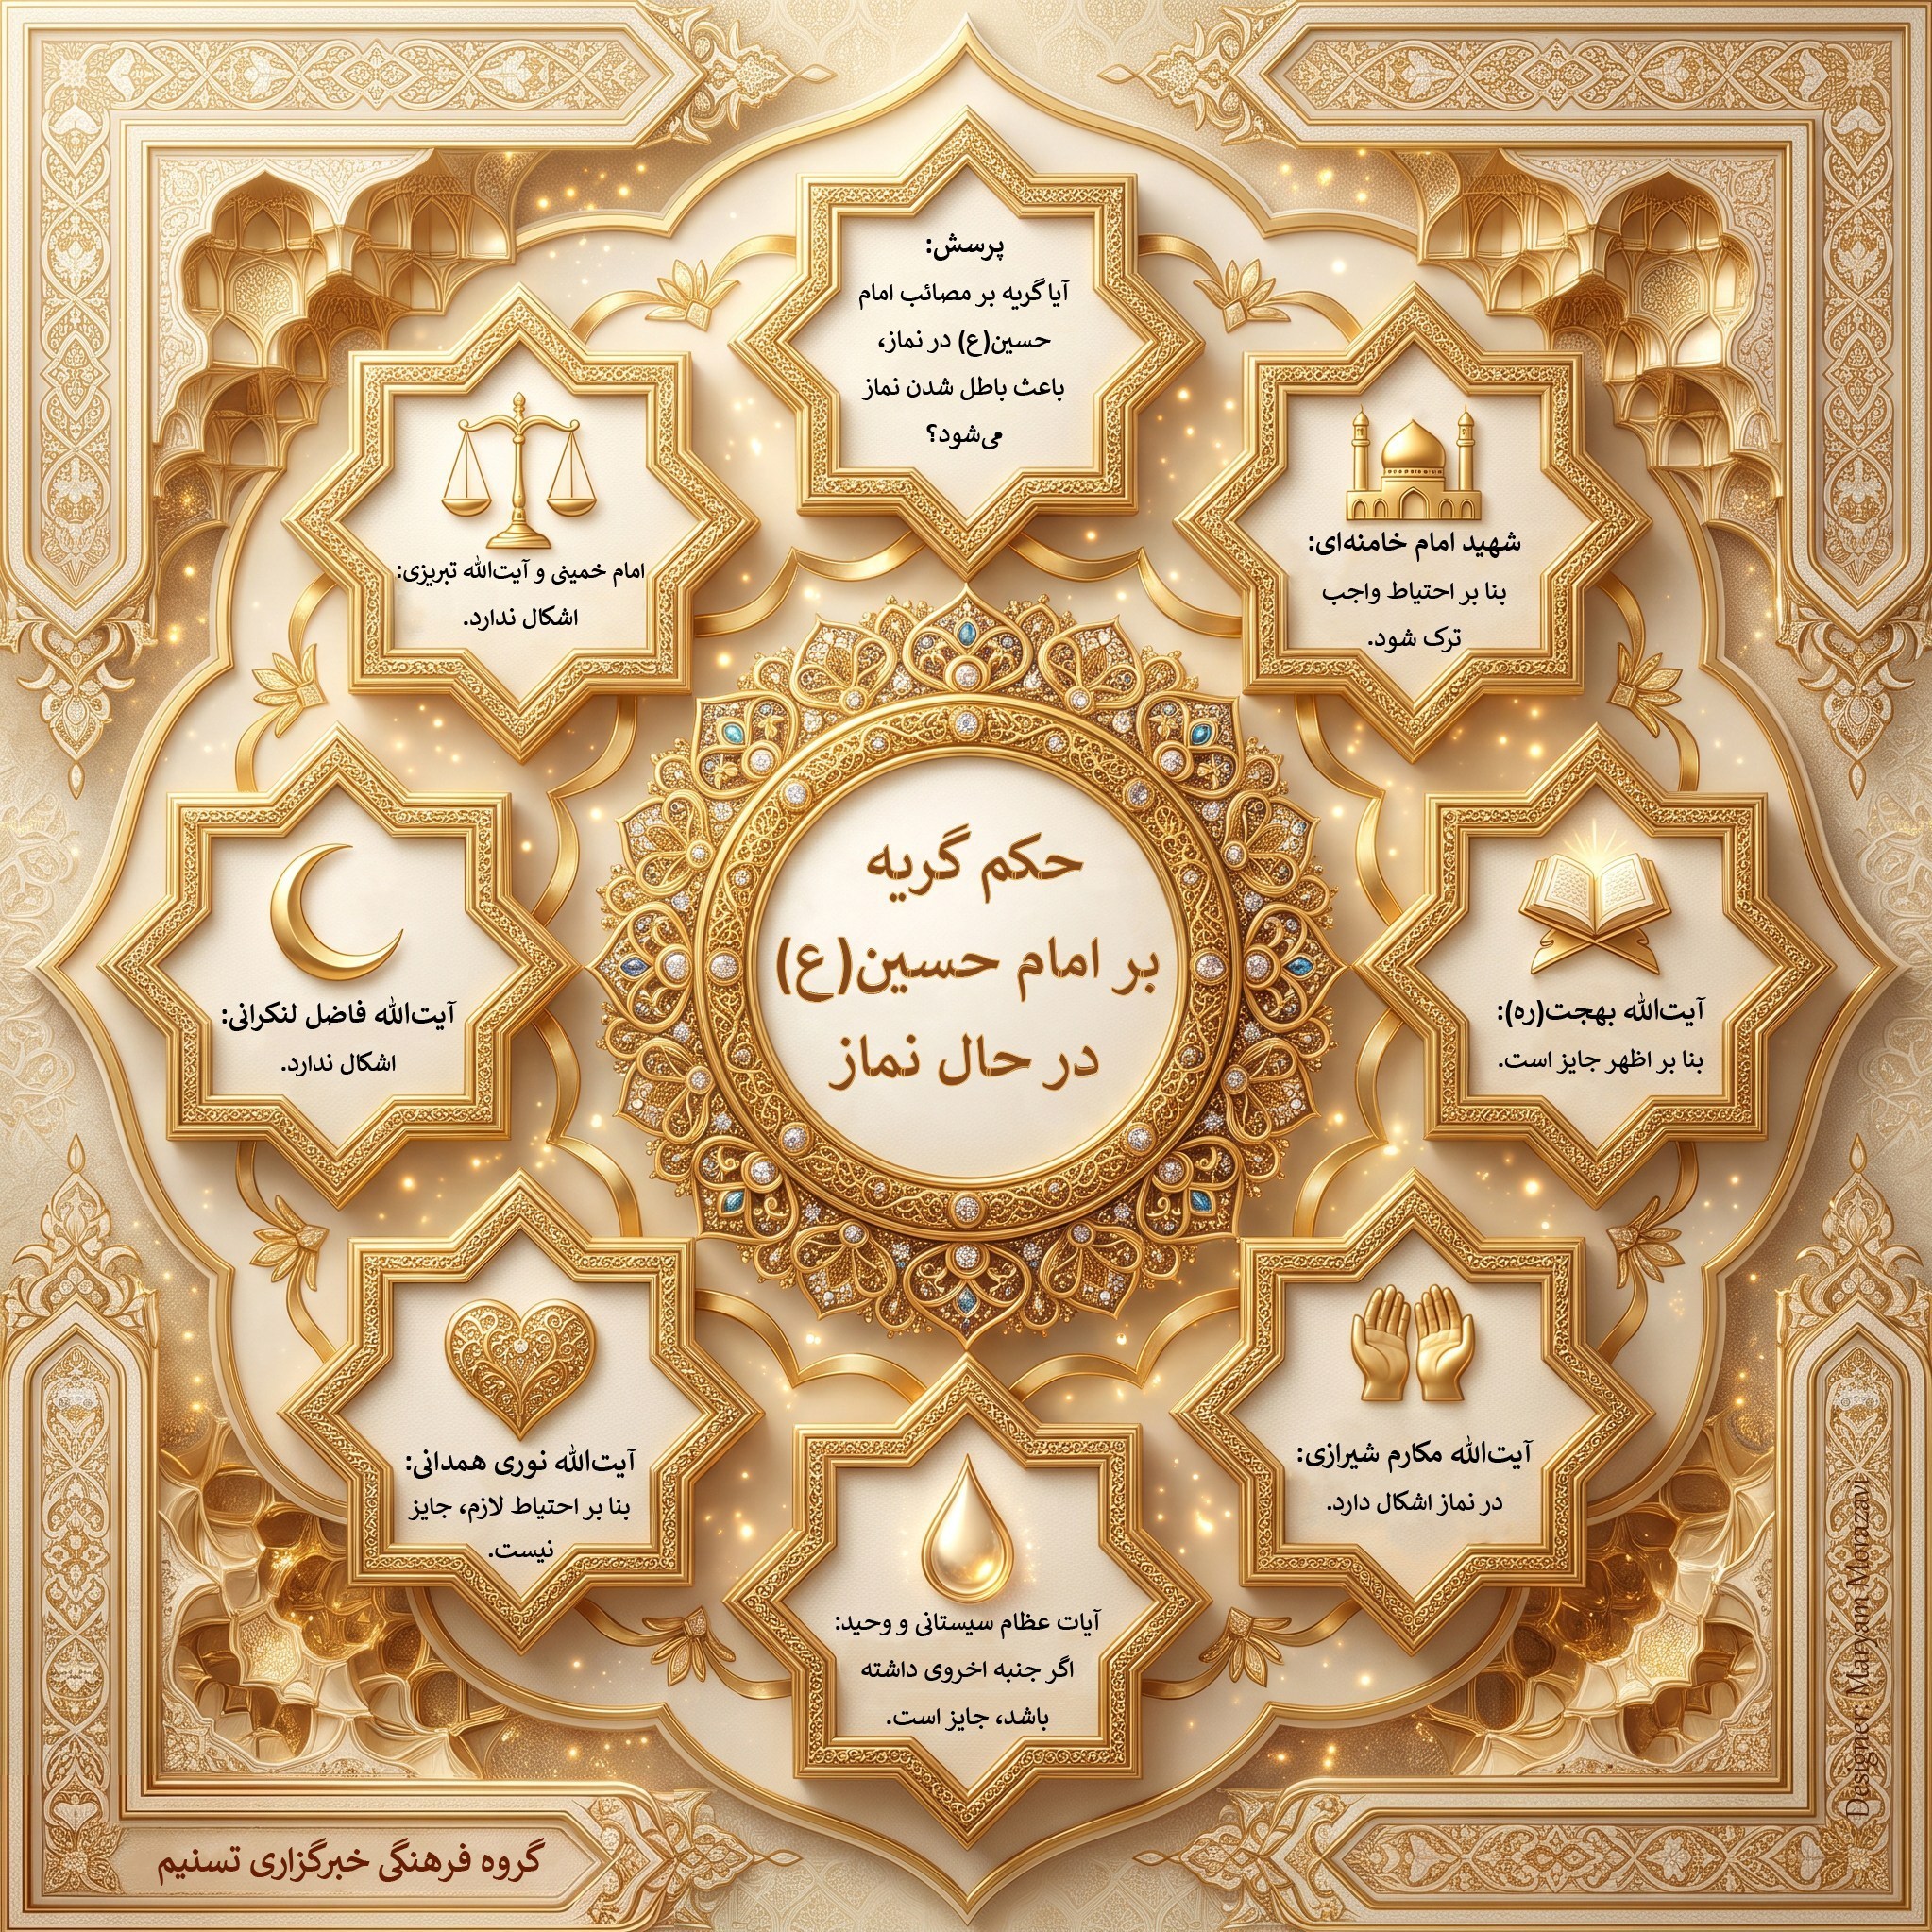 پرسش:
آیا گریه بر مصائب امام
حسین(ع) در نماز،
باعث باطل شدن نماز
می‌شود؟
شهید امام خامنه‌ای:
بنا بر احتیاط واجب
ترک شود.
امام خمینی و آیت‌الله تبریزی:
اشکال ندارد.
حکم گریه
بر امام حسین(ع)
در حال نماز
آیت‌الله بهجت(ره):
بنا بر اظهر جایز است.
آیت‌الله فاضل لنکرانی:
اشکال ندارد.
آیت‌الله مکارم شیرازی:
در نماز اشکال دارد.
آیت‌الله نوری همدانی:
بنا بر احتیاط لازم، جایز
نیست.
آیات عظام سیستانی و وحید:
اگر جنبه اخروی داشته
باشد، جایز است.
گروه فرهنگی خبرگزاری تسنیم
Designer: Maryam Morazavi